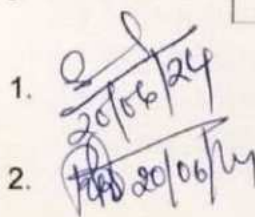 1. 20/06/24
2. 20/06/24